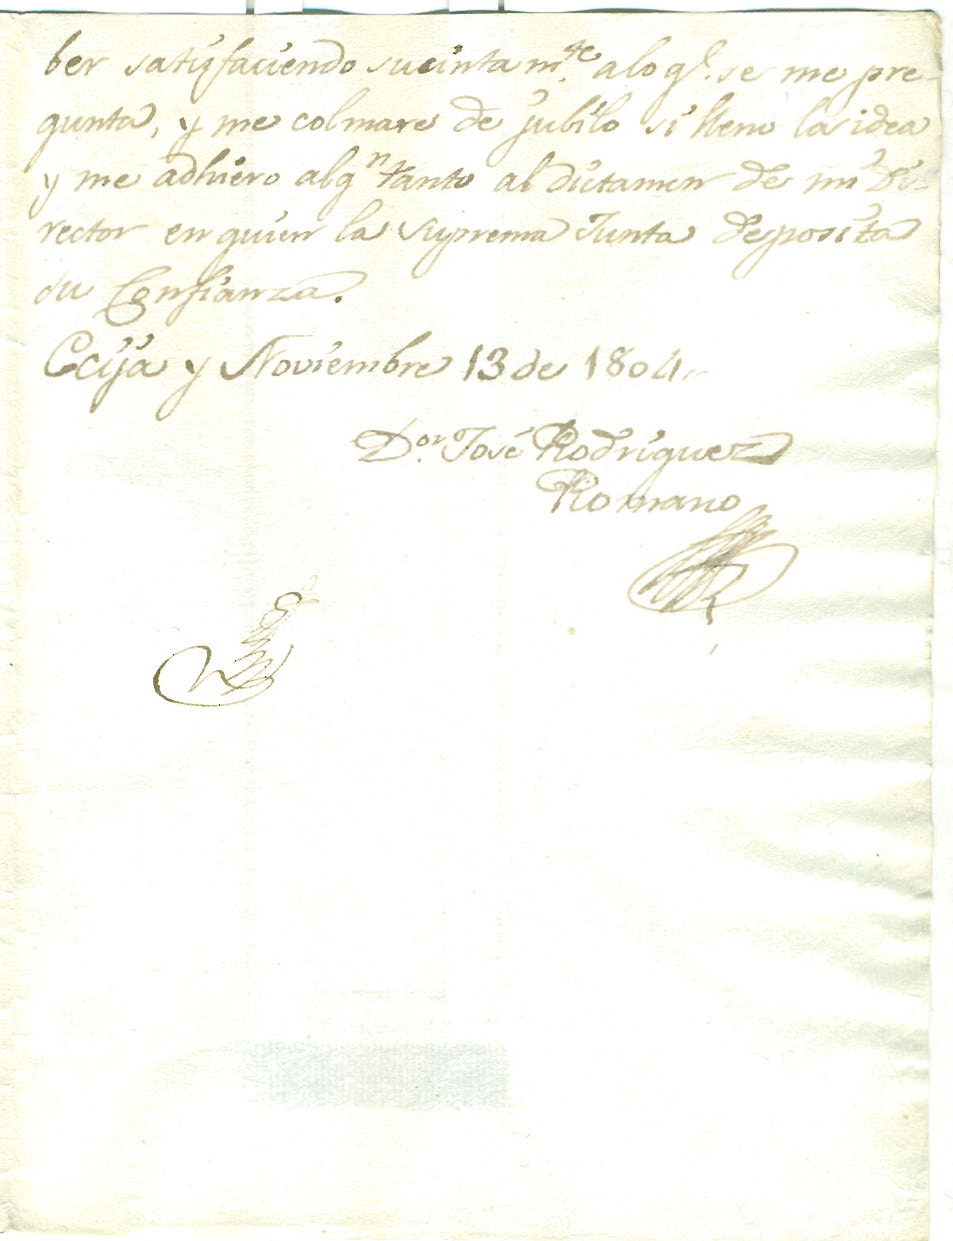 ber satisfaciendo sucintam.te a lo q.l se me pre-
gunta, y me colmare de jubilo si lleno la idea
y me adhiero al q.n tanto al dictamen de mi Di-
rector en quien la Suprema Junta deposita
su Confianza.
Ecija y Noviembre 13 de 1804
D.or José Rodriguez
Romano